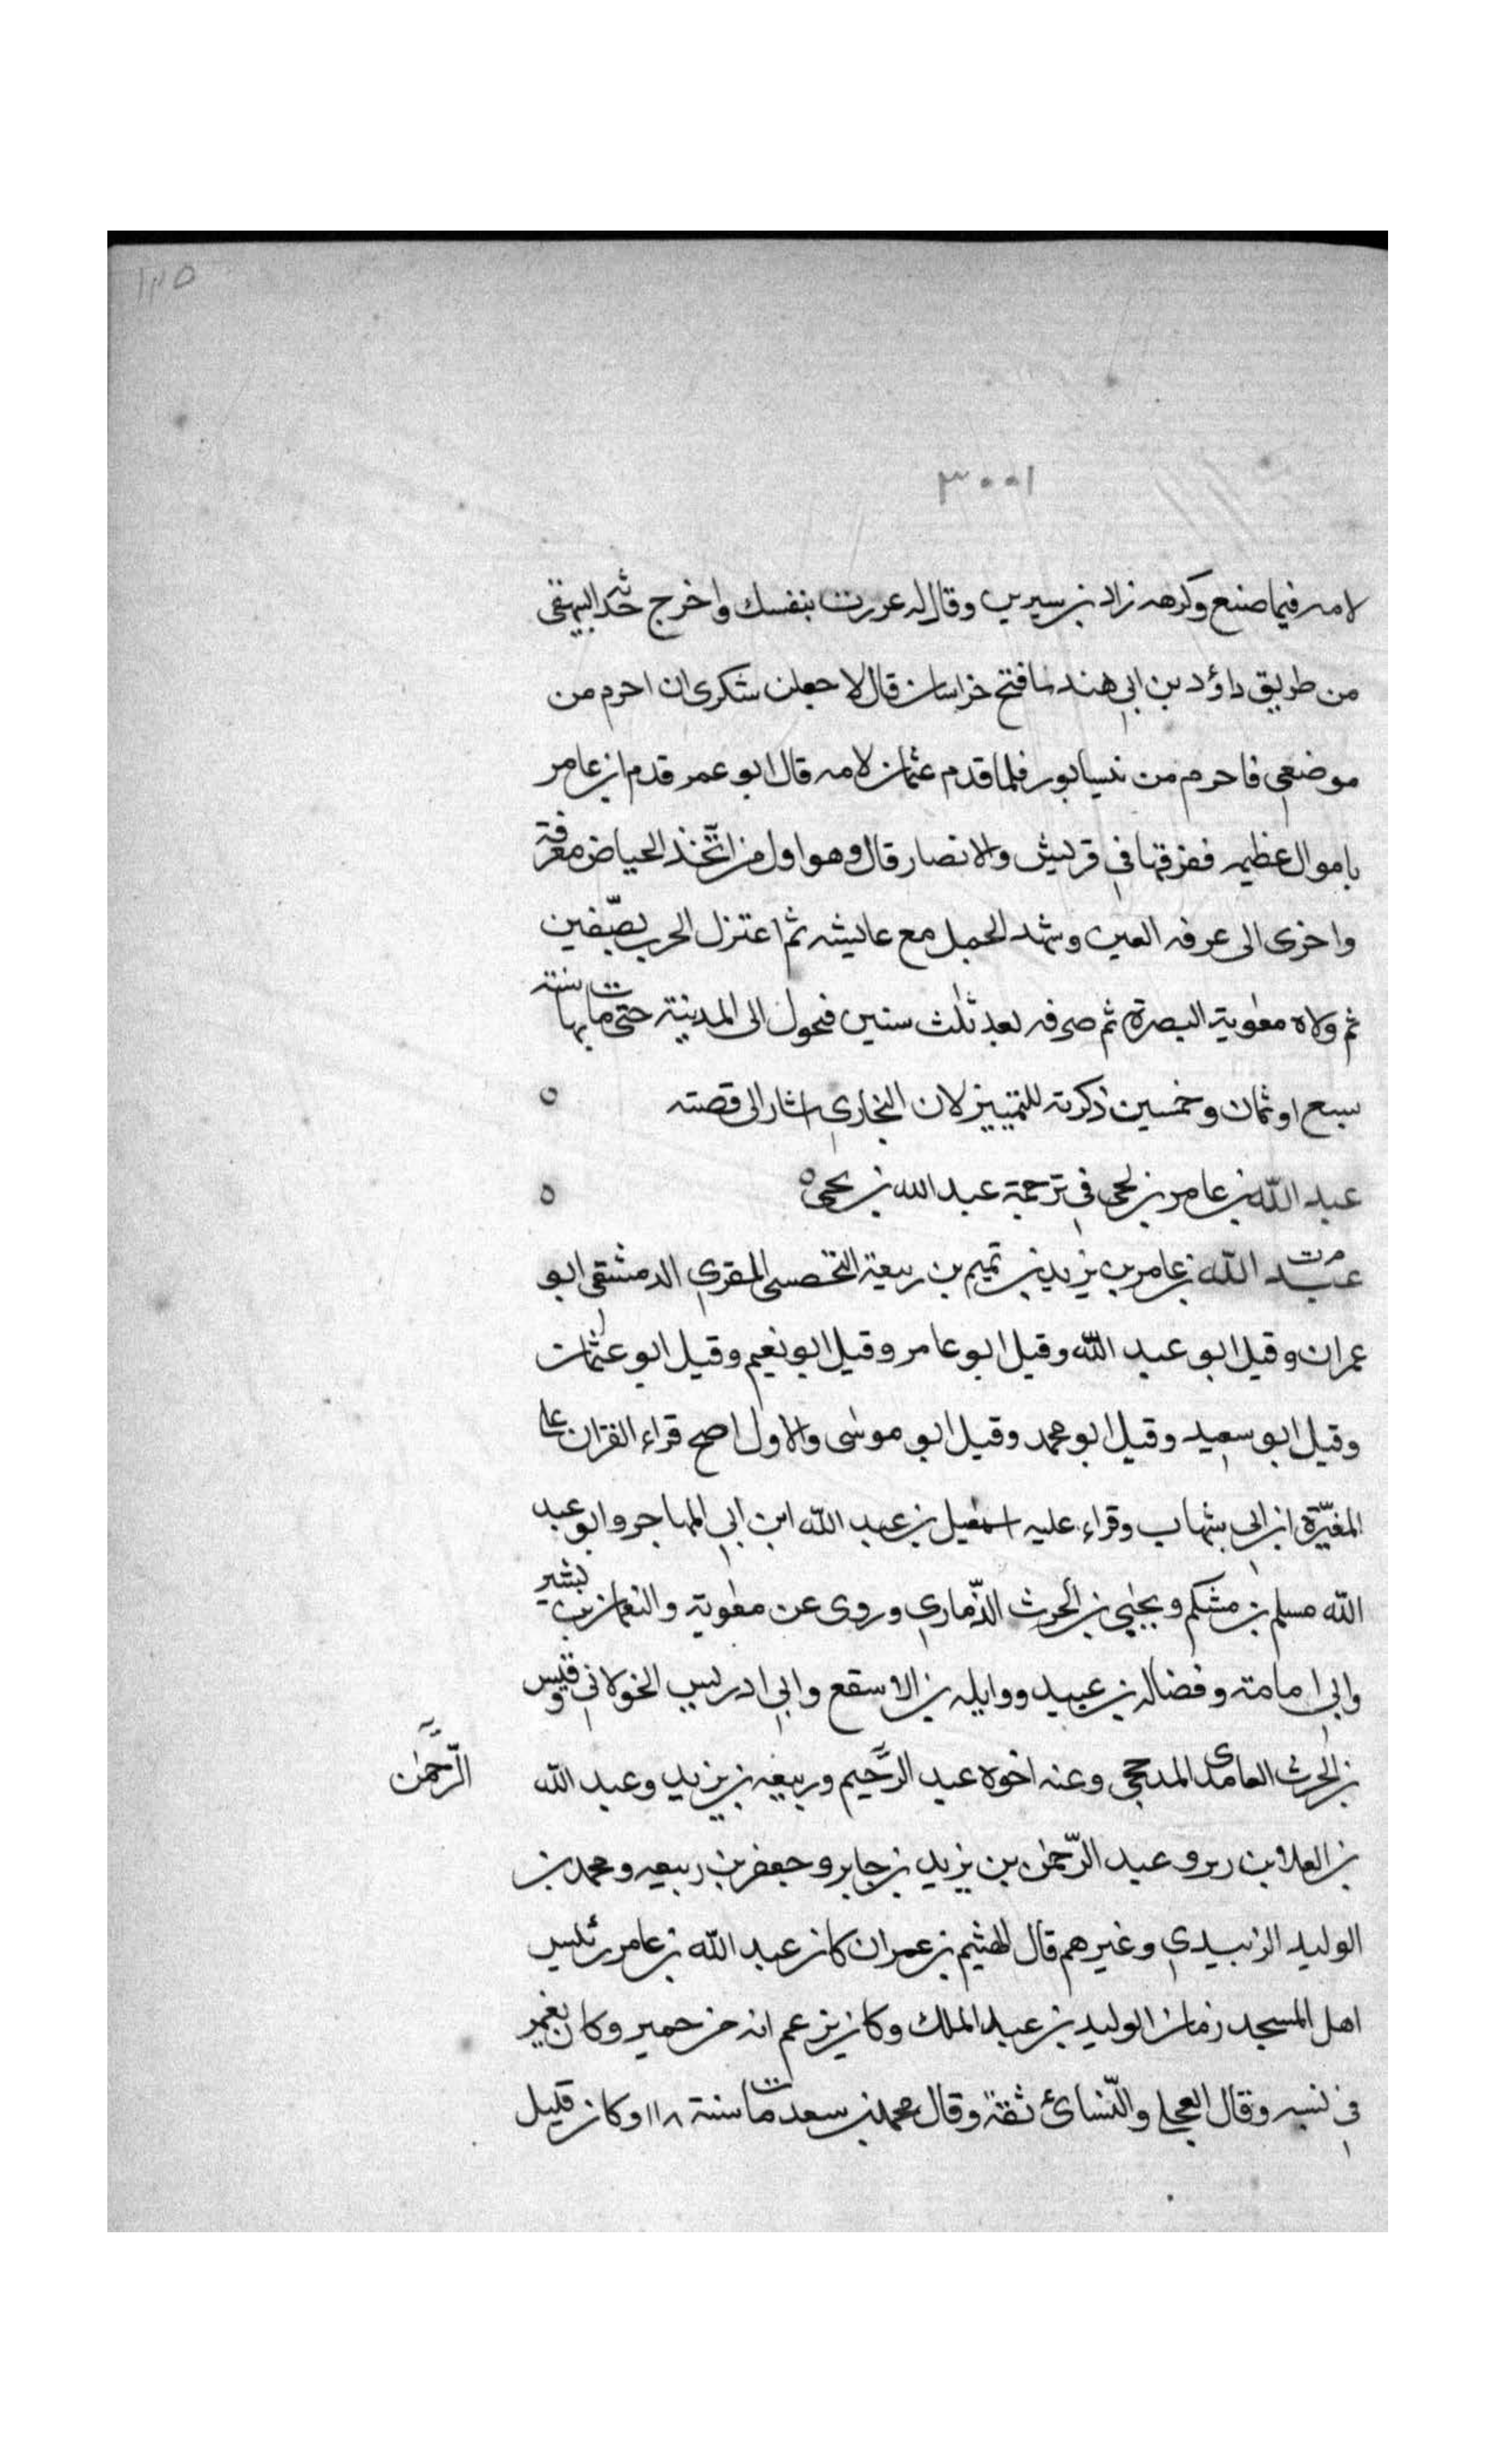 ١٢٥
٣٠٠١
لامه فيما صنع وكرهه زاد بن سيرين وقال له عررت بنفسك واخرج حديثه البيهقي
من طريق داؤد بن ابي هند لما فتح خراسان قال لاجعلن شكرى ان احرم من
موضعي فاحرم من نيسابور فلما قدم عثمان لامه قال ابو عمر قدم ابن عامر
باموال عظيم ففرقها في قريش والانصار قال وهو اول من اتّخذ الحياض معرفة
واخرى الى عرفه العين وشهد الجمل مع عايشه ثم اعتزل الحرب بصّفين
ثم ولاه معٰوية البصرة ثم صرفه بعد ثلٰث سنين فتحول الى المدينة حتى مات بها سنة
سبع او ثمان وخمسين ذكرته للتمييز لان البخاري اشار الى قصته ه
عبد اللّه بن عامر بن لحى في ترجمة عبد الله بن يحيى ه ه
مرت
عبد اللّه بن عامر بن يزيد بن تميم بن ربيعة التحصبى المقري الدمشقي ابو
عمران وقيل ابو عبد اللّه وقيل ابو عامر وقيل ابو نعيم وقيل ابو عثمان
وقيل ابو سعيد وقيل ابو محمد وقيل ابو موسٰى والاول اصح قراء القران على
المغيّرة ابن ابي شهاب وقراء عليه اسمٰعيل بن عبد اللّه ابن ابي المهاجر وابو عبد
اللّه مسلم بن مشكم ويحيٰى بن الحرث الذّماري وروى عن معٰوية والنعمان بن بشير
وابي امامته وفضاله بن عبيد ووايله بن الاسقع وابي ادريس الخولاني وقيس
بن الحرث العامدى المدحجى وعنه اخوه عبد الرّحيم وربيعه بن يزيد وعبد اللّه
الرّحمٰن
بن العلا بن ربر وعبد الرّحمٰن بن يزيد بن جابر وجعفر بن ربيعه ومحمد بن
الوليد الزبيدي وغيرهم قال الهثيم بن عمران كان عبد اللّه بن عامر رئيس
اهل المسجد زمان الوليد بن عبد الملك وكان يزعم انه من حمير وكان يغمر
في نسبه وقال العجلى والنّسائ ثقة وقال محمد بن سعد مات سنة ١١٨ وكان قليل